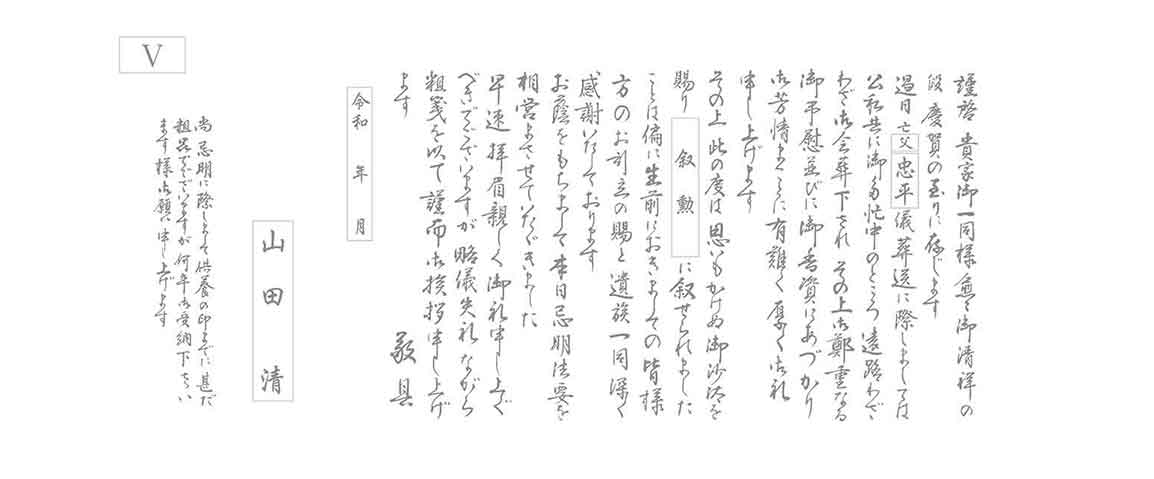 V
謹啓 貴家御一同様愈々御清祥の
段 慶賀の至りに存じます
過日 亡父 忠平 儀 葬送に際しましては
公私共に御多忙中のところ 遠路わざ
わざ御会葬下され その上御鄭重なる
御弔慰並びに御香資にあづかり
御芳情まことに有難く厚く御礼
申し上げます
その上 此の度は思いもかけぬ御沙汰を
賜り 叙勲 に叙せられました
ことは偏に生前におきましての皆様
方のお引立の賜と 遺族一同深く
感謝いたしております
お蔭をもちまして本日忌明法要を
相営ませていただきました
早速 拝眉親しく御礼申し上ぐ
べきでございますが 略儀失礼ながら
粗箋を以て謹而御挨拶申し上げ
ます
敬具
令和 年 月
山田 清
尚 忌明に際しまして供養の印までに 甚だ
粗品でございますが何卒御受納下さい
ます様御願い申し上げます